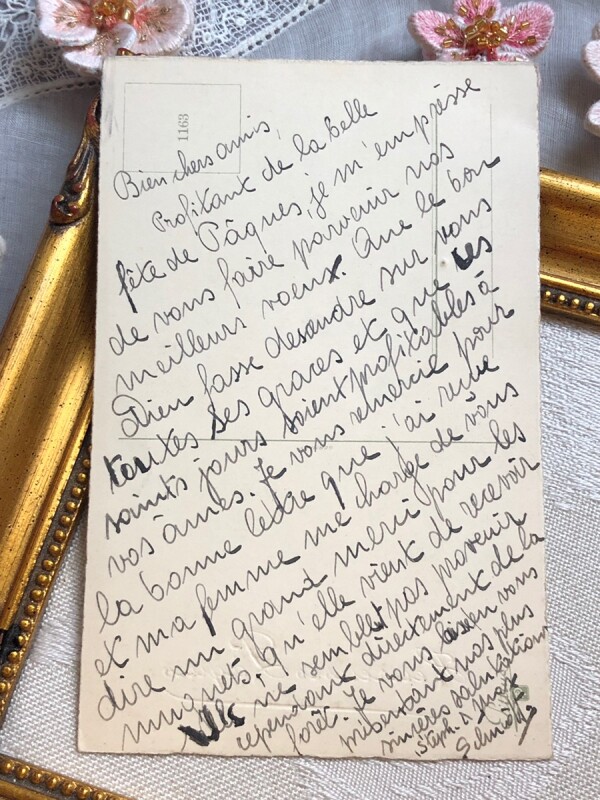 1163
Bien chers amis,
Profitant de la belle
fête de Pâques, je m'empresse
de vous faire parvenir nos
meilleurs voeux. Que le bon
Dieu fasse desendre sur vous
toutes ses graces et que les
saints jours soient profitables à
vos âmes. Je vous remercie pour
la bonne lettre que j'ai reçue
et ma femme me charge de vous
dire un grand merci pour les
muguets, qu'elle vient de recevoir
ils ne semblent pas parvenir
cependant directement de la
forêt. Je vous bien vous
présentant nos plus
sincères salutations